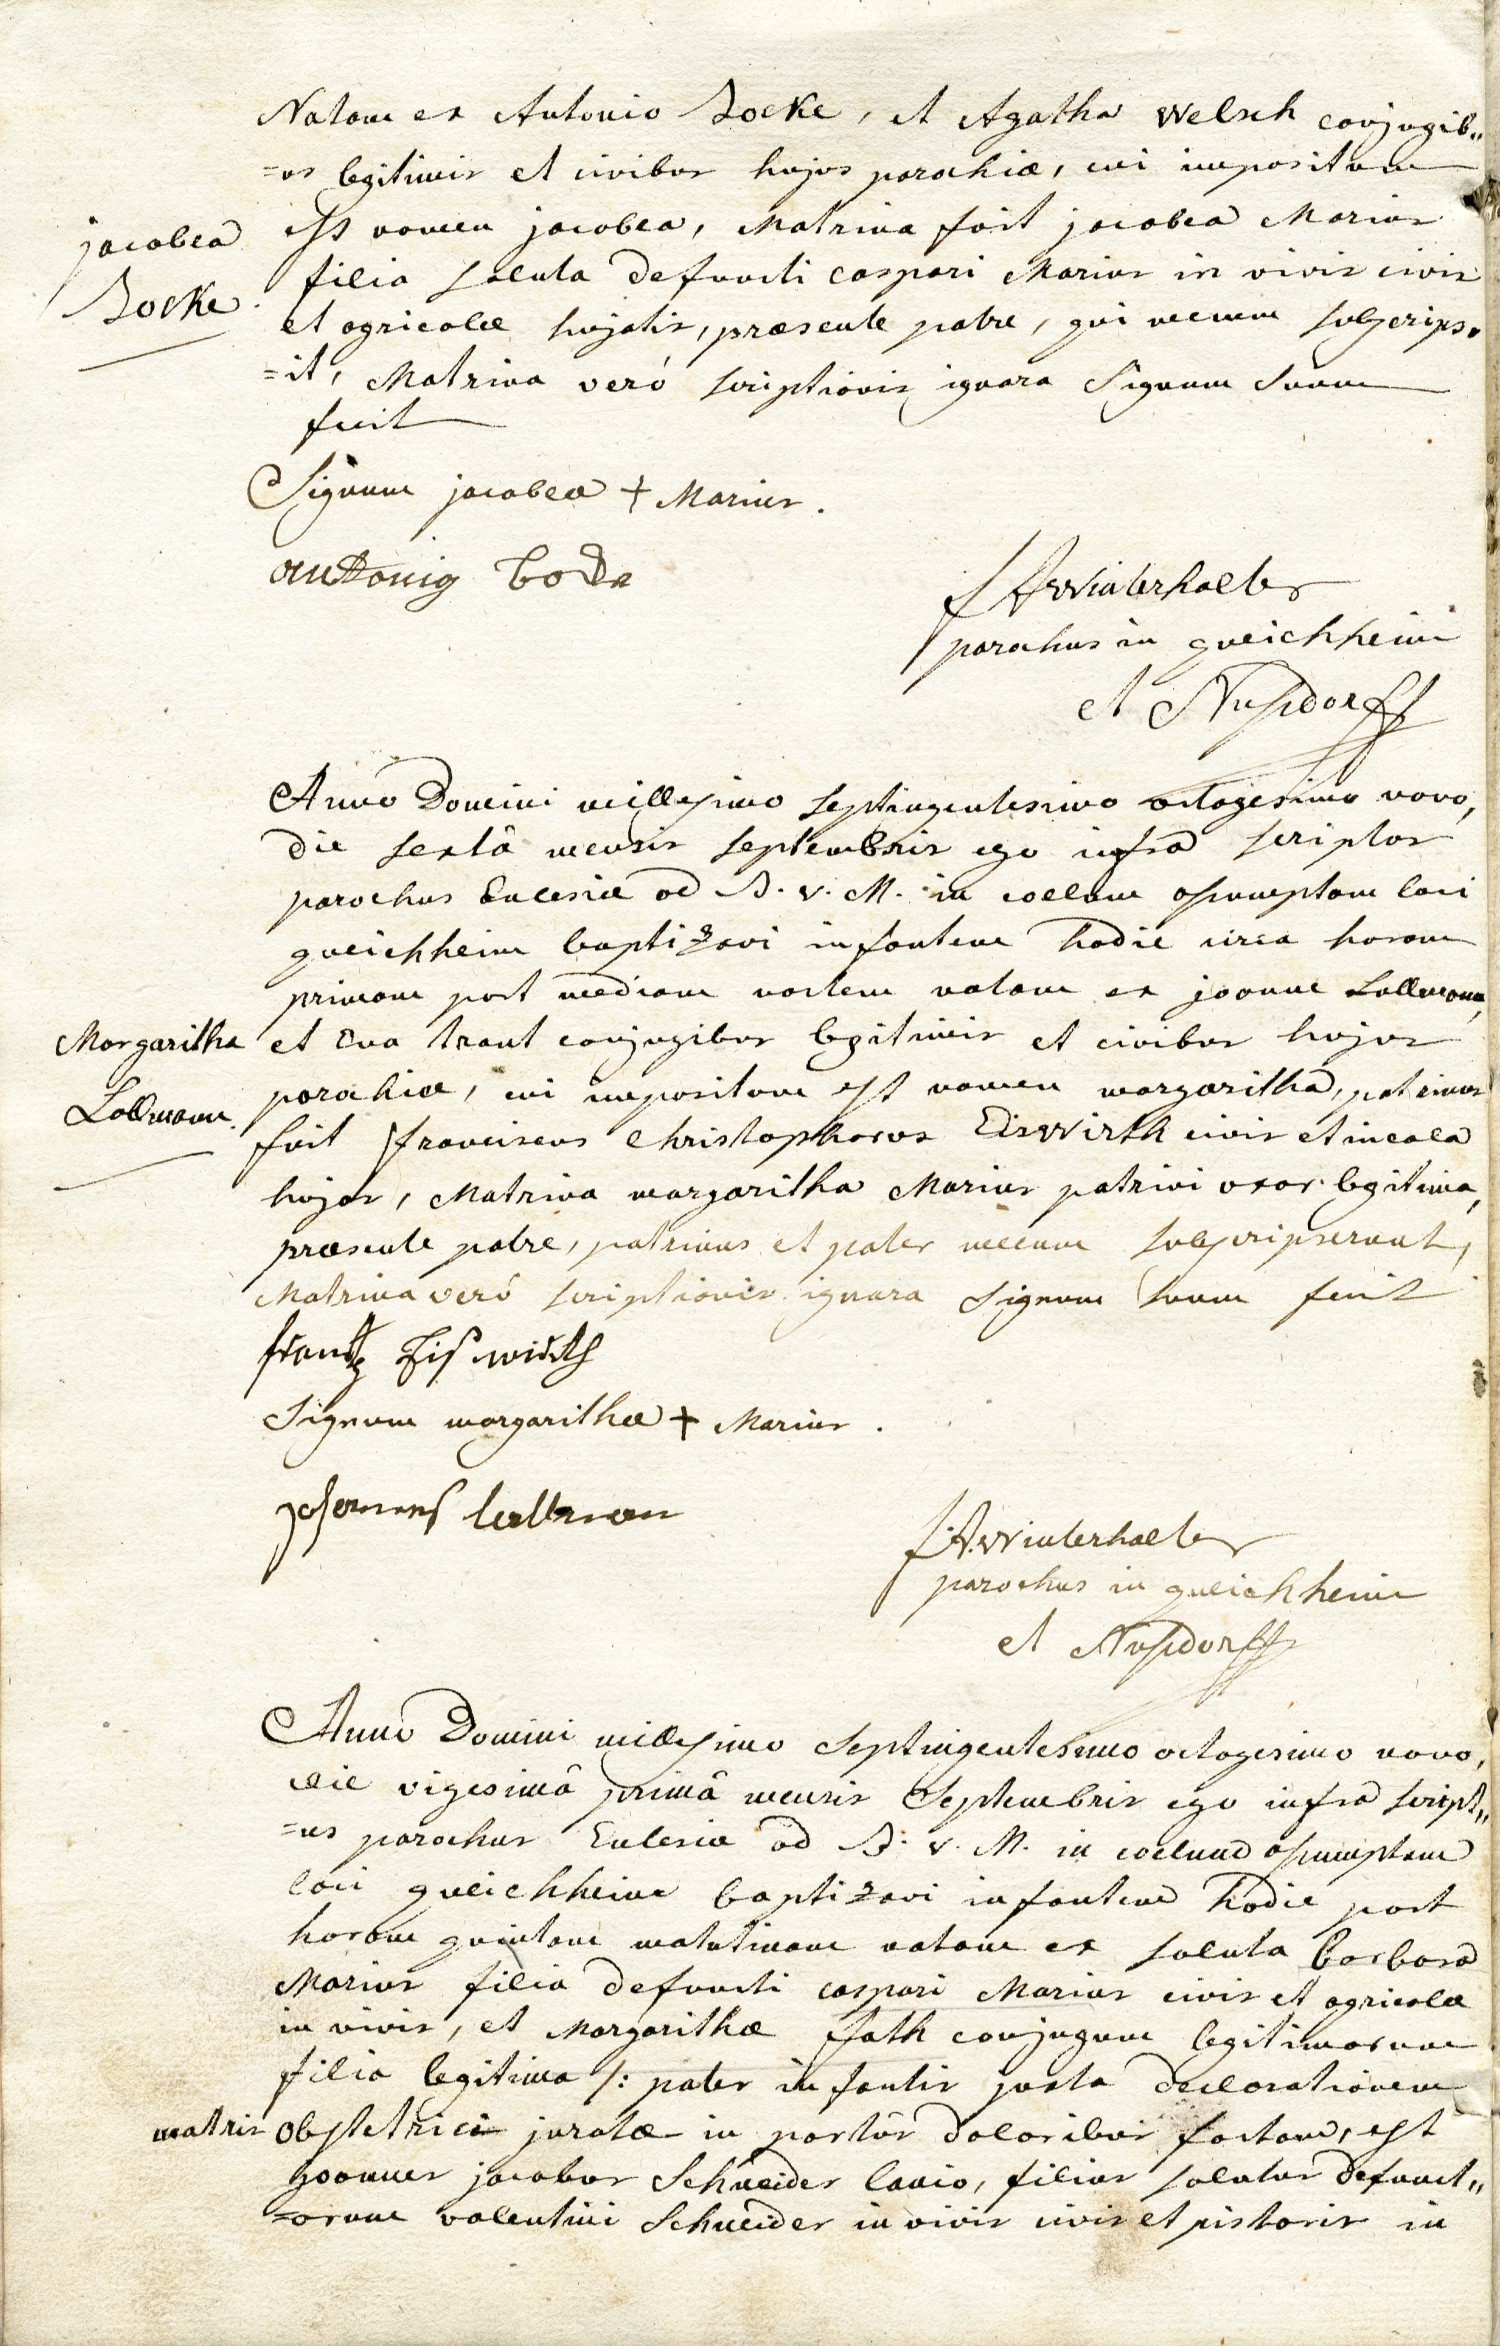 Natam ex Antonio Bocke, et Agatha Welsch conjugib„
=us legitimis et civibus hujus parochiæ, cui impositum
jacobea
est nomen jacobea, Matrina fuit jacobea Marius
filia soluta defuncti caspari Marius in vivis civis
Bocke.
et agricolæ hujatis, præsente patre, qui mecum subscrips„
=it, Matrina veró scriptionis ignara Signum Suum
fecit
Signum jacobeæ + Marius.
antonig bock
FA Winterhalter
parochus in queichheim
et Nusdorff
Anno Domini millesimo septingentesimo octogesimo nono,
die sextâ mensis septembris ego infra scriptus
parochus Ecclesiæ ad B. v. M. in coelum assumptam loci
queichheim baptizavi infantem hodie circa horam
primam post mediam noctem natam ex joanne Lollmann,
Margaritha
et Eva traut conjugibus legitimis et civibus hujus
Lollmann.
parochiæ, cui impositum est nomen margaritha, patrinus
fuit franciscus Christophorus Eiswirth civis et incola
hujas, Matrina margaritha Marius patrini uxor legitima,
præsente patre, patrinus et pater mecum subscripserunt,
Matrina veró scriptionis ignara signum suum fecit
frantz Eiswirth
Signum margarithæ + Marius.
johannes lollman
FA. Winterhalter
parochus in queichheim
et Nusdorff
Anno Domini millesimo septingentesimo octogesimo nono,
die vigesimâ primâ mensis Septembris ego infra script„
=us parochus Ecclesiæ ad B. v. M. in coelum assumptam
loci queichheim baptizavi infantem hodie post
horam quintam matutinam natam ex soluta barbara
Marius filia defuncti caspari Marius civis et agricolæ
in vivis, et Margarithæ fath conjugum legitimorum
filia legitima /: pater infantis juxta declarationem
matris obstetrici juratæ in partûs doloribus factam, est
joannes jacobus Schneider lanio, filius solutus defunct„
=orum valentini Schneider in vivis civis et pistoris in